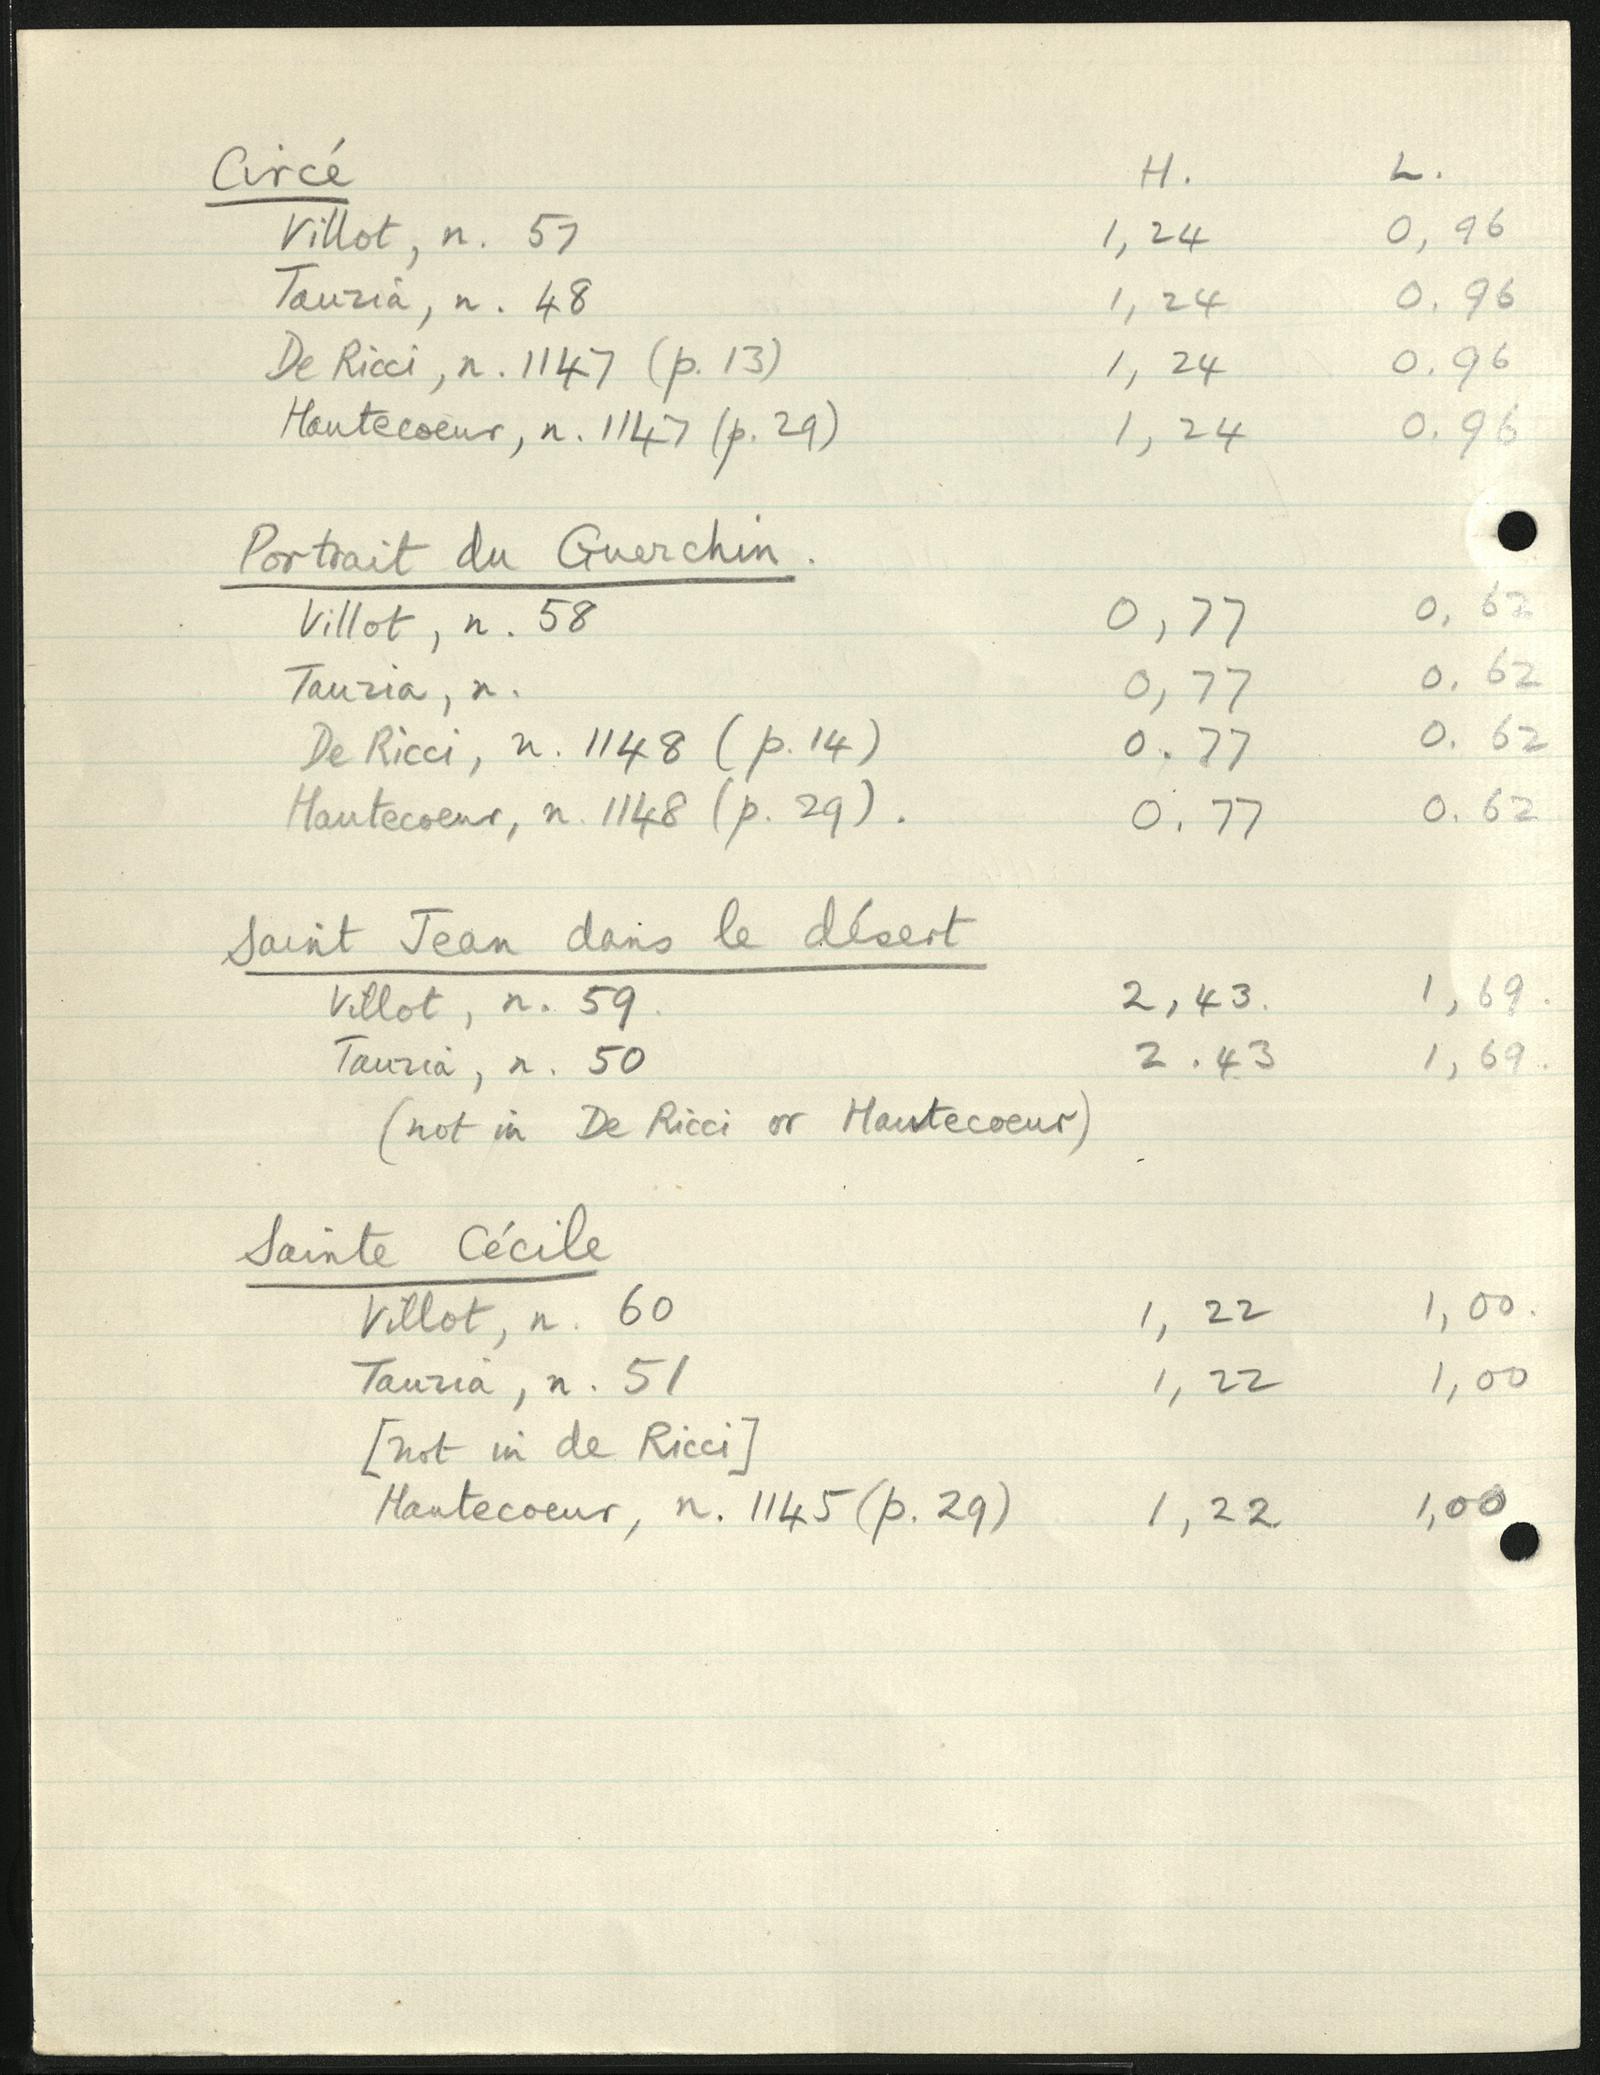 Circé H. L.
Villot, n. 57 1,24 0,96
Tauzia, n. 48 1,24 0.96
De Ricci, n. 1147 (p. 13) 1,24 0.96
Hautecoeur, n. 1147 (p. 29) 1,24 0.96
Portrait du Guerchin.
Villot, n. 58 0,77 0,62
Tauzia, n. 0,77 0.62
De Ricci, n. 1148 (p. 14) 0.77 0.62
Hautecoeur, n. 1148 (p. 29). 0.77 0.62
Saint Jean dans le désert
Villot, n. 59. 2,43. 1,69.
Tauzia, n. 50 2.43 1,69.
(not in De Ricci or Hautecoeur)
Sainte Cécile
Villot, n. 60 1,22 1,00.
Tauzia, n. 51 1,22 1,00
[not in de Ricci]
Hautecoeur, n. 1145 (p. 29) 1,22 1,00